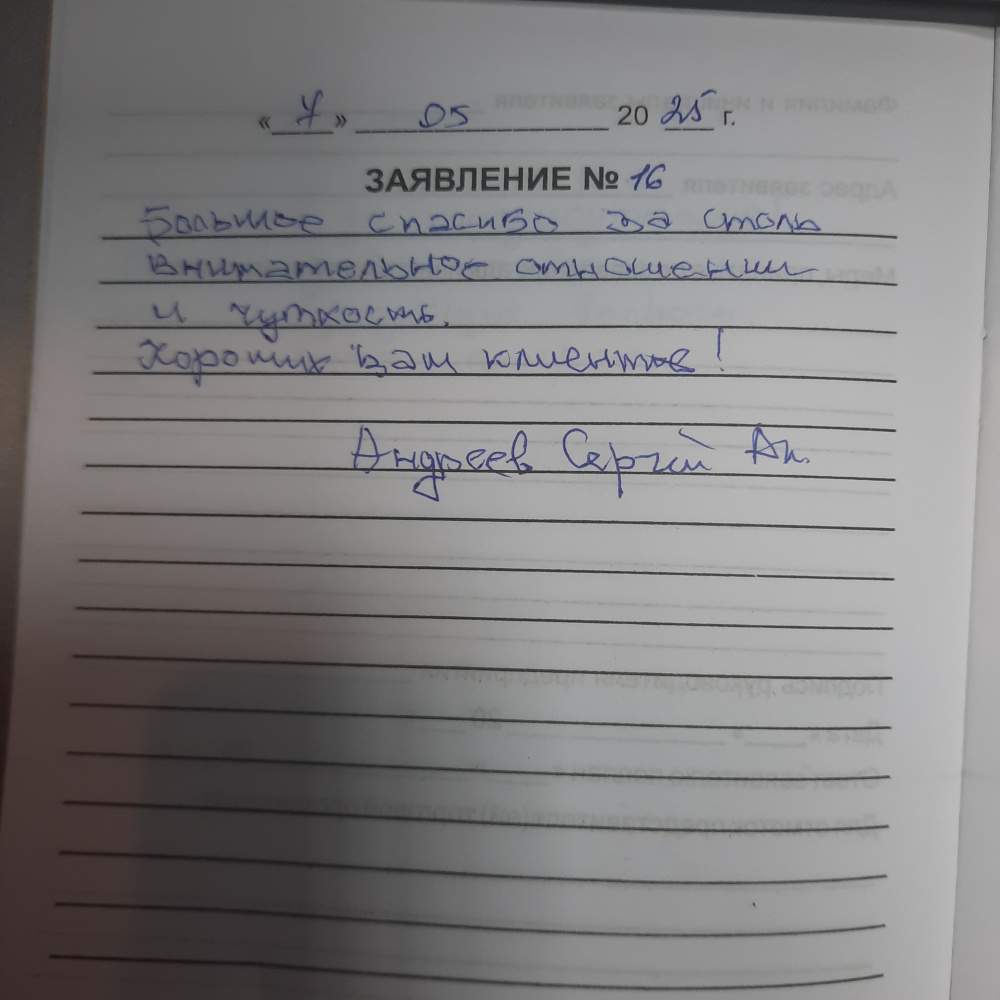 «7» 05 2025 г.
ЗАЯВЛЕНИЕ № 16
Большое спасибо за столь
внимательное отношение
и чуткость.
Хороших вам клиентов!
Андреев Сергей Ан.